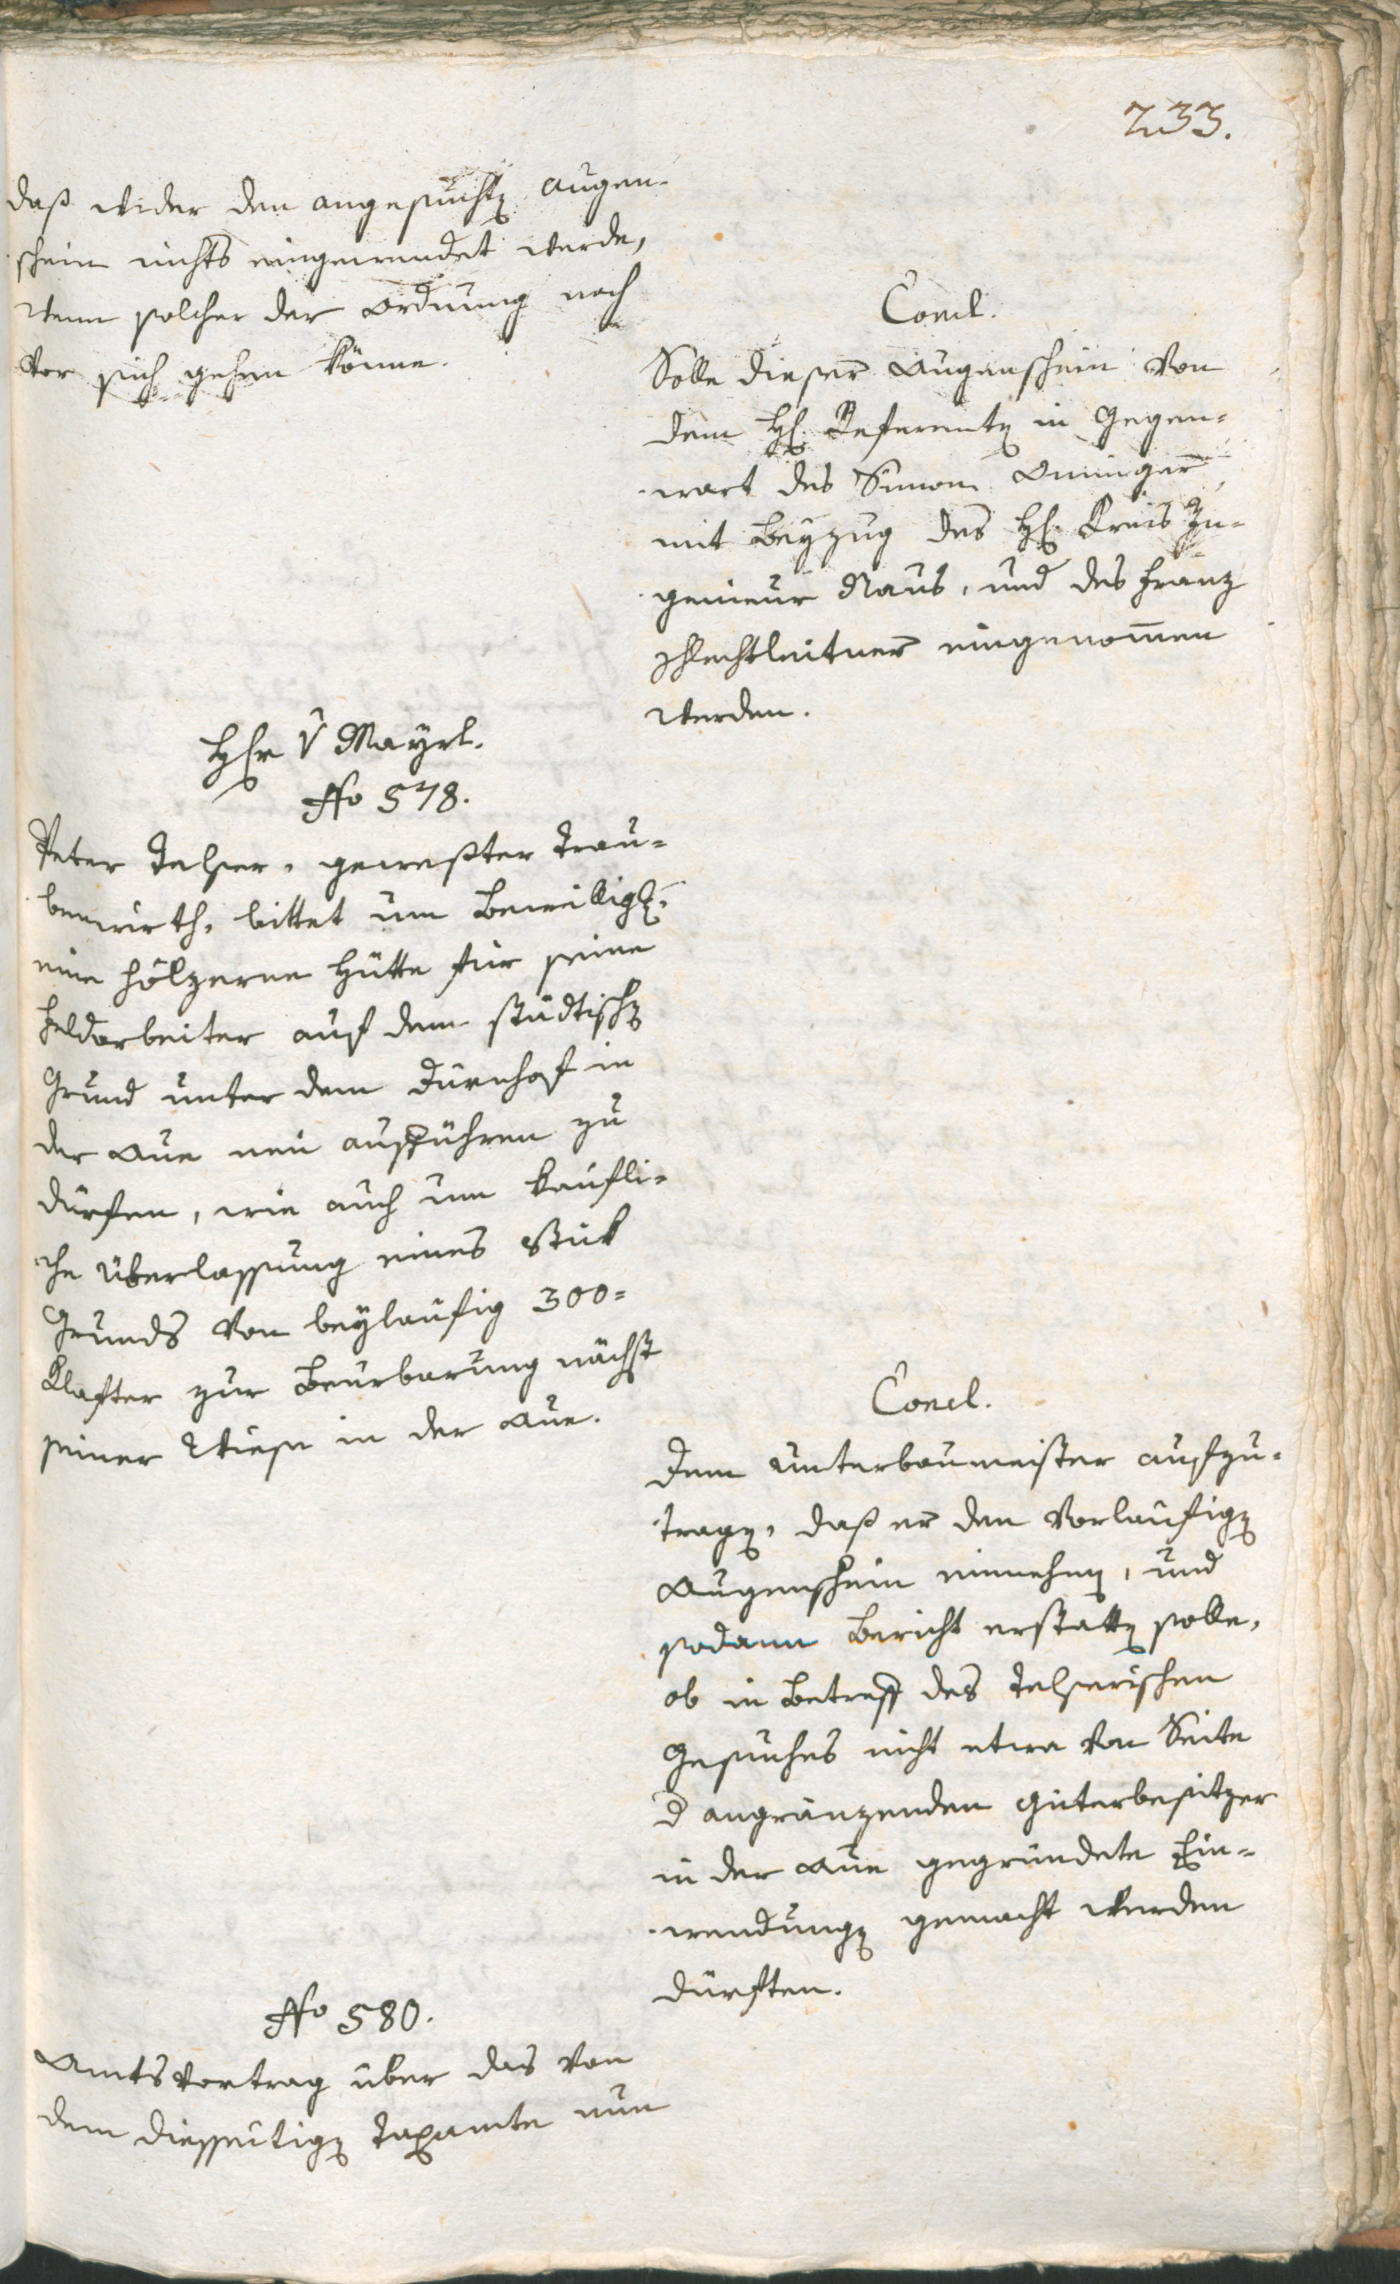 233.
daß wider den angesuchten Augen-
schein nichts eingewendet werde,
wenn solcher der Ordnung nach
vor sich gehen könne.
Concl.
Solle dieser Augenschein von
dem H. Referenten in Gegen-
wart des Simon Oninger
mit Beyzug des H. Kreis In-
genieur Naus, und des Franz
Schlechtleitner eingenommen
werden.
Herr v Mayrl.
No 578.
Peter Telser, gewester Trau-
benwirth, bittet um Bewilligg.
eine hölzerne Hütte für seine
Feldarbeiter auf dem städtischen
Grund unter dem Dürnhof in
der Aue neu aufführen zu
dürfen, wie auch um kaufli-
che Überlassung eines Stük
Grunds von beyläufig 300=
Klafter zur Beurbarung nächst
seiner Wiese in der Aue.
Concl.
Dem Unterbaumeister aufzu-
tragen, daß er den vorläufigen
Augenschein einnehmen, und
sodann Bericht erstatten solle,
ob in Betreff des Telserischen
Gesuches nicht etwa von Seite
d angränzenden Güterbesitzer
in der Aue gegründete Ein-
wendungen gemacht werden
dürften.
No 580.
Amtsvortrag über das von
dem diesseitigen Taxamte nun